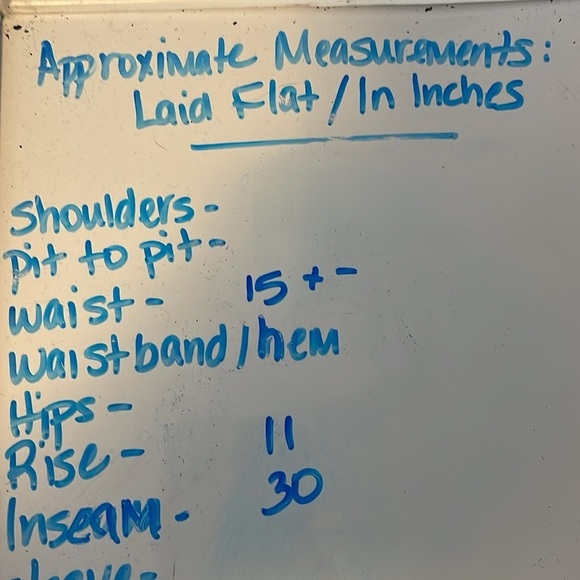 Approximate Measurements:
Laid Flat / In Inches
Shoulders -
pit to pit -
waist - 15 + -
waistband / hem
Hips -
Rise - 11
Inseam - 30